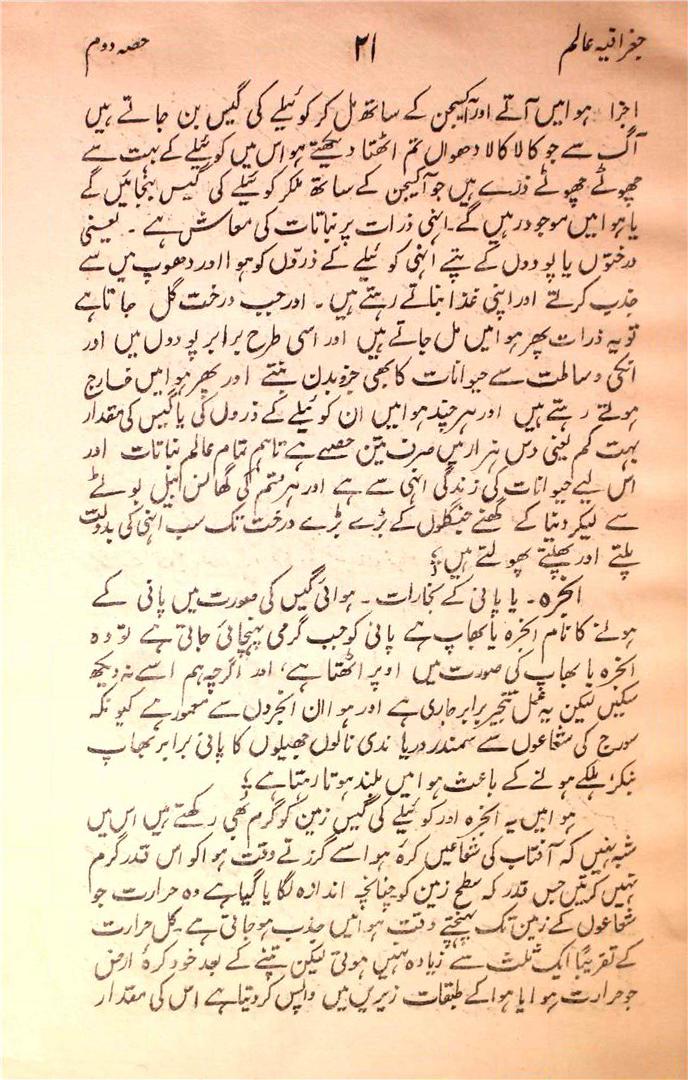 جغرافیہ عالم ۲۱ حصہ دوم
اجزا ہوا میں آتے اور آکسیجن کے ساتھ مل کر کوئیلے کی گیس بن جاتے ہیں
آگ سے جو کالا کالا دھواں تم اٹھتا دیکھتے ہو اس میں کوئیلے کے بہت سے
چھوٹے چھوٹے ذرے ہیں جو آکسیجن کے ساتھ ملکر کوئیلے کی گیس بنجائیں گے
یا ہوا میں موجود رہیں گے۔ انہی ذرات پر نباتات کی معاش ہے ۔ یعنی
درختوں یا پودوں کے پتے انہی کوئیلے کے ذروں کو ہوا اور دھوپ میں سے
جذب کرتے اور اپنی غذا بناتے رہتے ہیں ۔ اور جب درخت گل جاتا ہے
تو یہ ذرات پھر ہوا میں مل جاتے ہیں اور اسی طرح برابر پودوں میں اور
انکی وساطت سے حیوانات کا بھی جزو بدن بنتے اور پھر ہوا میں خارج
ہوتے رہتے ہیں اور ہر چند ہوا میں ان کوئیلے کے ذروں کی یا گیس کی مقدار
بہت کم یعنی دس ہزار میں صرف تین حصے ہے تاہم تمام عالم نباتات اور
اس لیے حیوانات کی زندگی انہی سے ہے اور ہر قسم کی گھانس بیل بوٹے
سے لیکر دنیا کے گھنے جنگلوں کے بڑے بڑے درخت تک سب انہی کی بدولت
پلتے اور پھلتے پھولتے ہیں؛
ابخرہ ۔ یا پانی کے بخارات ۔ ہوائی گیس کی صورت میں پانی کے
ہونے کا نام ابخرہ یا بھاپ ہے پانی کو جب گرمی پہنچائی جاتی ہے تو وہ
ابخرہ یا بھاپ کی صورت میں اوپر اٹھتا ہے، اور اگرچہ ہم اسے نہ دیکھ
سکیں لیکن یہ عمل تبخیر برابر جاری ہے اور ہوا ان ابخروں سے معمور ہے کیونکہ
سورج کی شعاعوں سے سمندر دریا ندی نالوں جھیلوں کا پانی برابر بھاپ
بنکر ہلکے ہونے کے باعث ہوا میں بلند ہوتا رہتا ہے؛
ہوا میں یہ ابخرہ اور کوئیلے کی گیس زمین کو گرم بھی رکھتے ہیں اس میں
شبہ نہیں کہ آفتاب کی شعاعیں کرۂ ہوا سے گزرتے وقت ہوا کو اس قدر گرم
نہیں کرتیں جس قدر کہ سطح زمین کو چنانچہ اندازہ لگایا گیا ہے وہ حرارت جو
شعاعوں کے زمین تک پہنچتے وقت ہوا میں جذب ہو جاتی ہے کل حرارت
کے تقریباً ایک ثلث سے زیادہ نہیں ہوتی لیکن تپنے کے بعد خود کرۂ ارض
جو حرارت ہوا یا ہوا کے طبقات زیریں میں واپس کر دیتا ہے اس کی مقدار